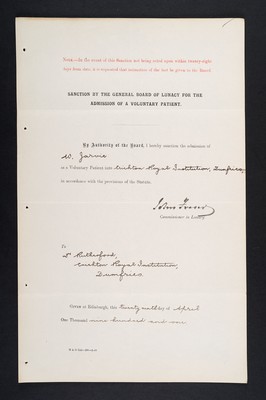 NOTE.—In the event of this Sanction not being acted upon within twenty-eight
days from date, it is requested that intimation of the fact be given to the Board.
SANCTION BY THE GENERAL BOARD OF LUNACY FOR THE
ADMISSION OF A VOLUNTARY PATIENT.
By Authority of the Board, I hereby sanction the admission of
W. Jarvie
as a Voluntary Patient into Crichton Royal Institution, Dumfries,
in accordance with the provisions of the Statute.
John Fraser
Commissioner in Lunacy.
To
Dr Rutherford,
Crichton Royal Institution,
Dumfries
Given at Edinburgh, this Twenty ninth of April
One Thousand nine hundred and one